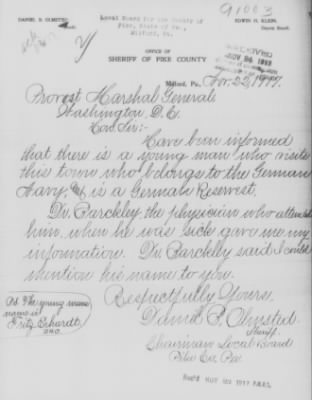 91003
DANIEL B. OLMSTED
Local Board for the County of
Pike, State of Pa.,
Milford, Pa.
EDWIN H. KLEIN,
OFFICE OF
SHERIFF OF PIKE COUNTY
RECEIVED
NOV 26 1917
Milford, Pa., Nov. 22, 1917.
Provost Marshal General
Washington D.C.
Hon. Sir:-
Have been informed
that there is a young man who visits
this town who belongs to the German
Navy, & is a German Reservest.
Dr. Barckley, the physician who attended
him when he was sick gave me my
information. Dr. Barckley said I could
mention his name to you.
Respectfully Yours,
Daniel B. Olmsted.
Sheriff.
Chairman Local Board
Pike Co, Pa.
P.S. The young mans
name is
Fritz Erhardt.
D.B.O.
Rec'd NOV 23 1917 P.M.G.